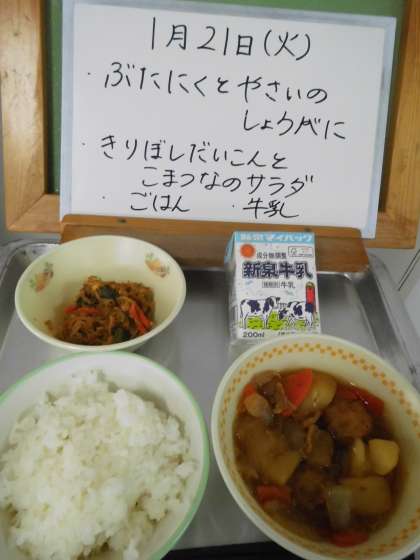 1月21日(火)
・ぶたにくとやさいの
しょうべに
・きりぼしだいこんと
こまつなのサラダ
・ごはん ・牛乳
成分無調整
新泉牛乳
牛乳
200ml